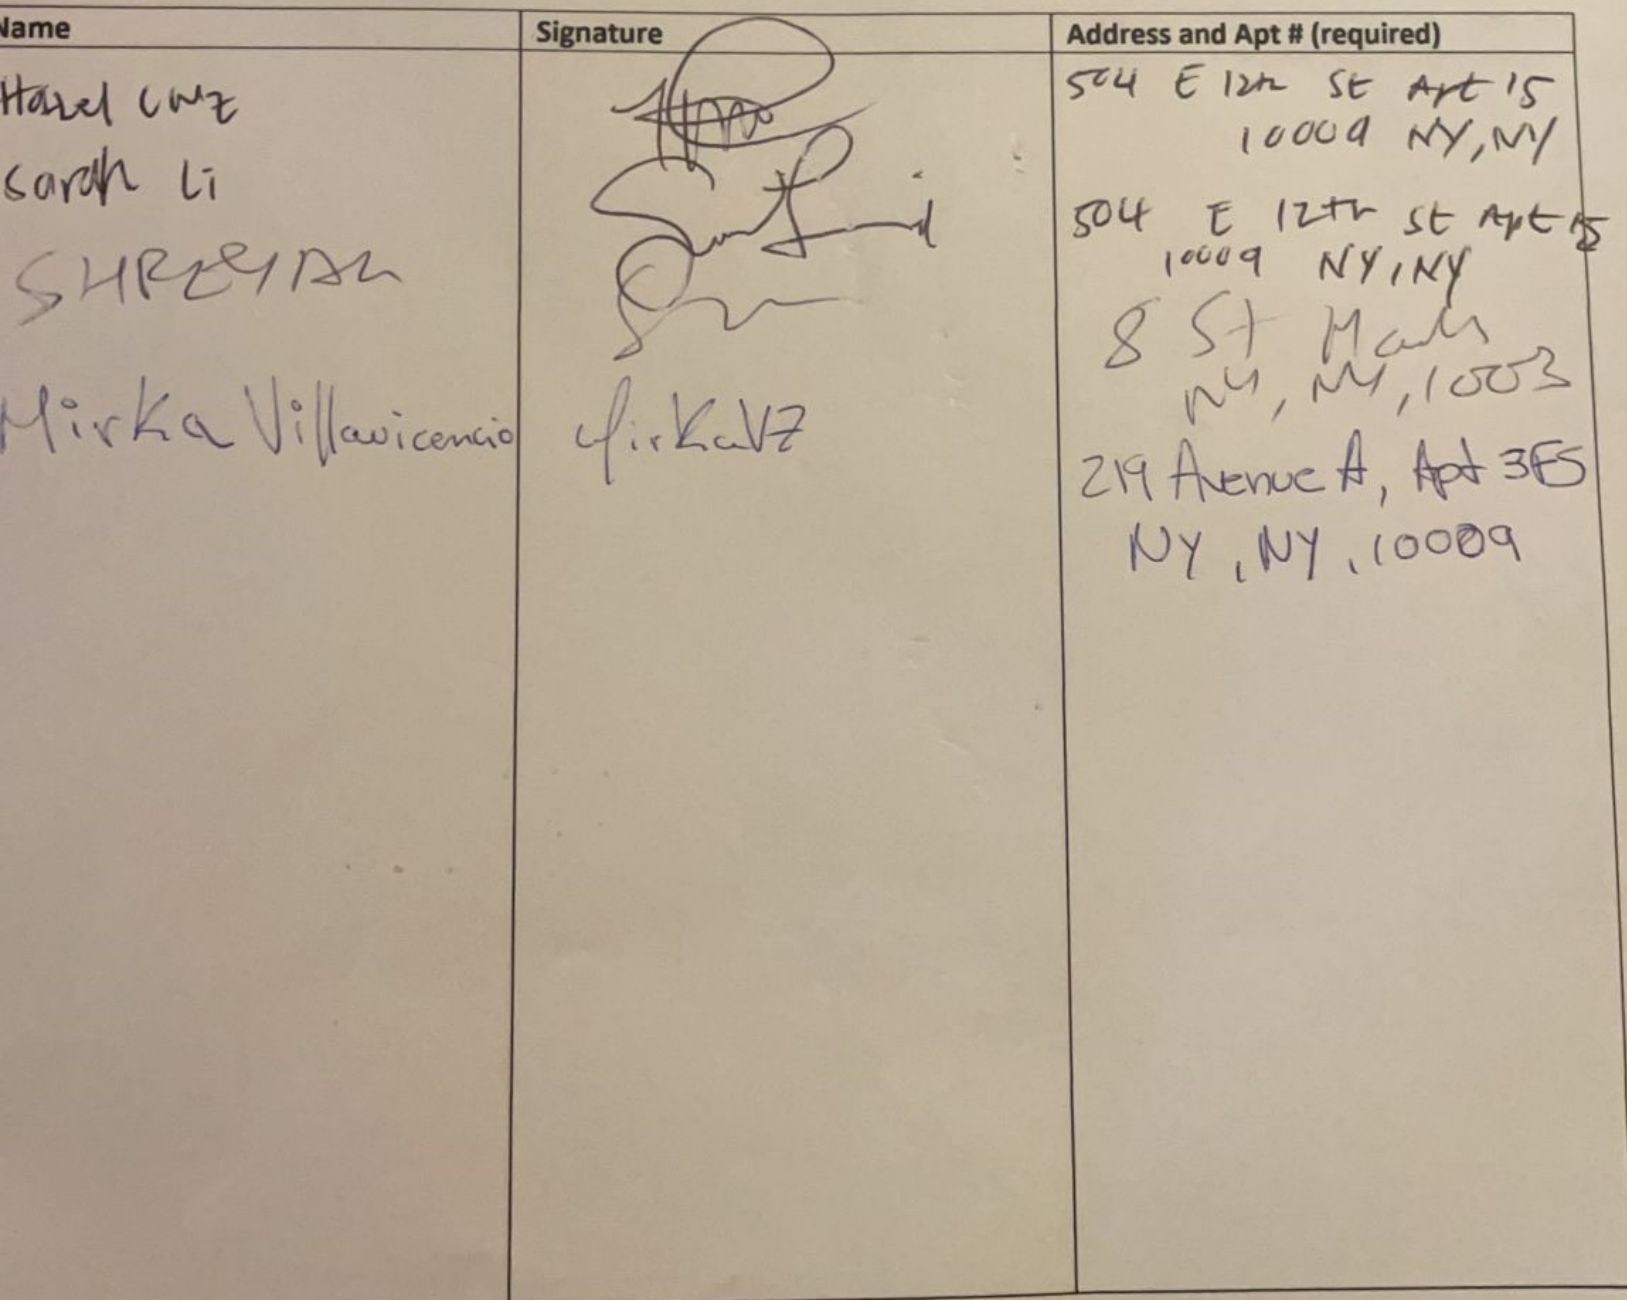 Name Signature Address and Apt # (required)
Hazel Cruz 504 E 12th St Apt 15
10009 NY, NY
Sarah Li
504 E 12th St Apt 15
10009 NY, NY
8 St Marks
NY, NY, 1003
Mirka Villavicencio MirkaVZ 219 Avenue A, Apt 3E5
NY, NY, 10009